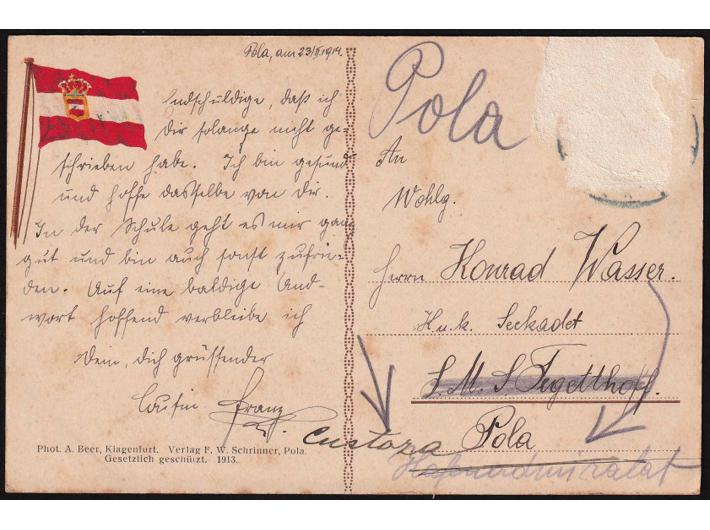 Pola, am 23/II 1914.
Endschuldige, daß ich
Dir solange nicht ge-
schrieben habe. Ich bin gesund
und hoffe dasselbe von Dir.
In der Schule geht es mir ganz
gut und bin auch sonst zufrie-
den. Auf eine baldige And-
wort hoffend verbleibe ich
Dein, Dich grüssender
Cousin Franz
Phot. A. Beer, Klagenfurt. Verlag F. W. Schrinner, Pola.
Gesetzlich geschützt. 1913.
Pola
An
Wohlg.
Herrn Konrad Wasser.
K u. k. Seekadet
S. M. S. Tegetthoff.
Custoza Pola
Hafenadmiralat